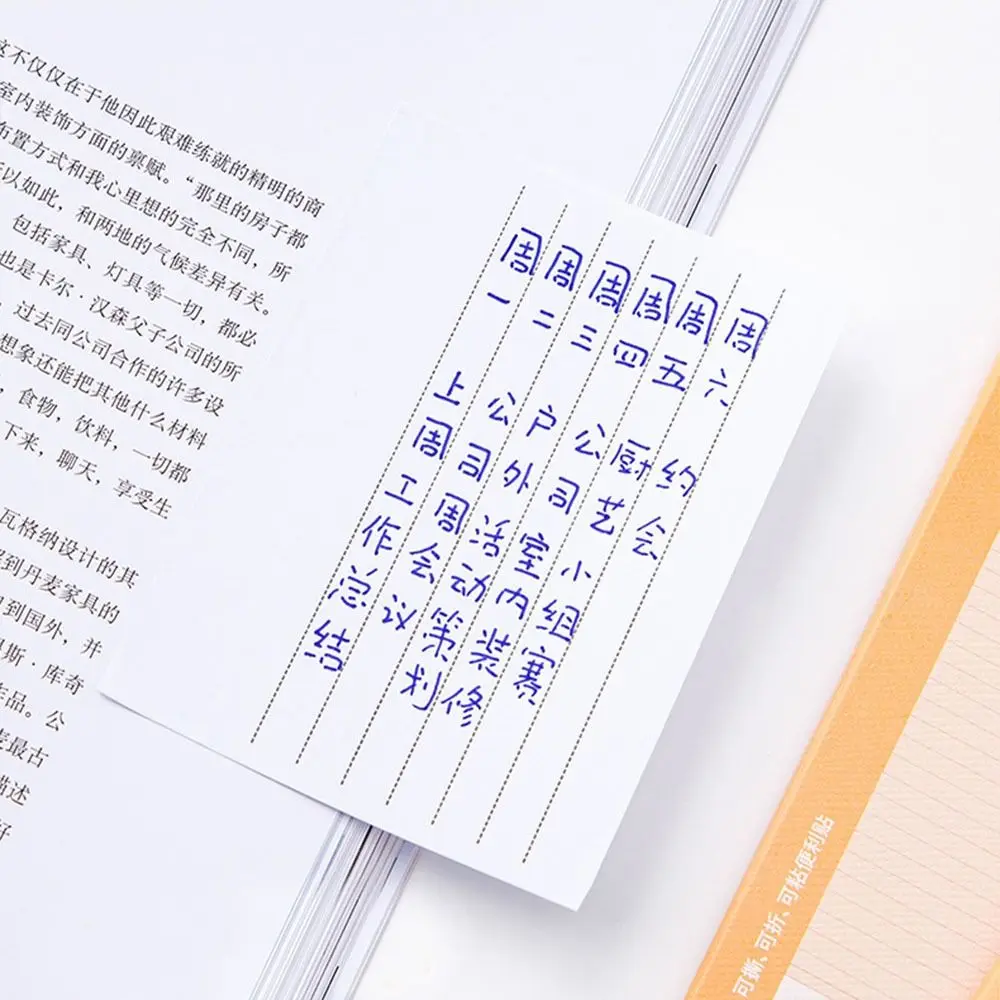 这不仅仅在于他因此艰难练就的精明的商
室内装饰方面的禀赋。“那里的房子都
布置方式和我心里想的完全不同，所
以如此，和两地的气候差异有关。
包括家具、灯具等一切，都必
也是卡尔·汉森父子公司的所
过去同公司合作的许多设
想象还能把其他什么材料
，食物，饮料，一切都
下来，聊天，享受生
瓦格纳设计的其
到丹麦家具的
到国外，并
斯·库奇
作品。公
最古
描述
好
周一 上周工作总结
周二 公司周会议
周三 户外活动策划
周四 公司室内装修
周五 厨艺小组赛
周六 约会
可撕、可折、可粘便利贴